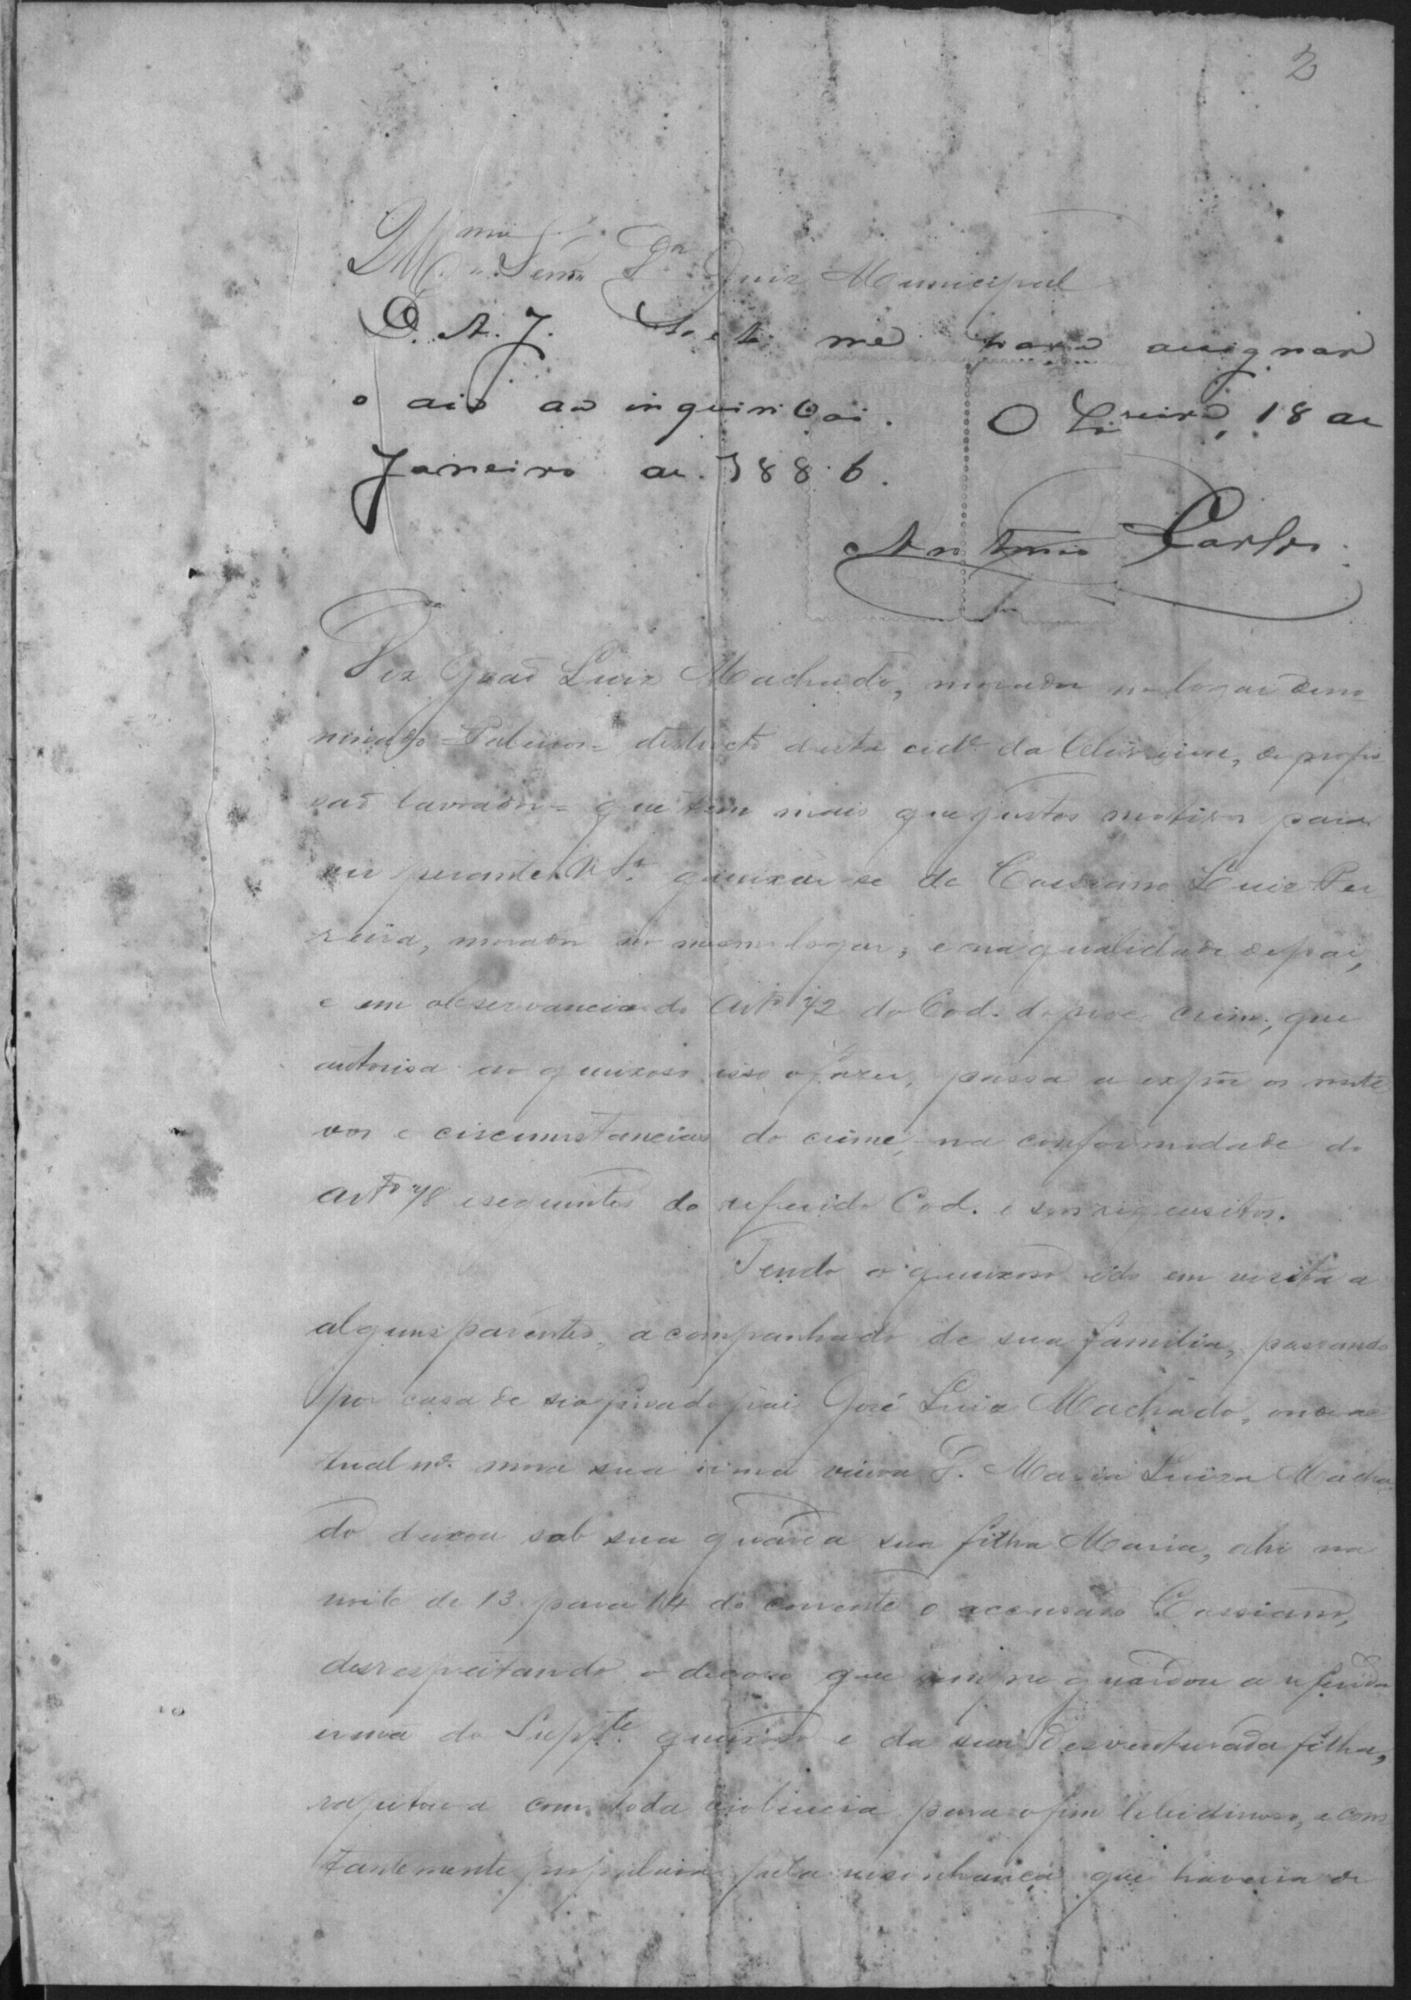 2
Juiz Municipal
D. A. J. me para assignar
o dia da inquirição. Oliveira, 18 de
Janeiro de 1886.
Antonio Carlos
Diz João Luiz Machado, morador no logar deno
minado = = districto desta cidᵉ da Oliveira, de profis
são lavrador = que tem mais que justos motivos para
vir perante V. Sᵃ queixar-se de Cassiano Luiz Per
reira, morador no mesmo logar, e na qualidade de pai,
e em observancia do Artº 72 do Cod. do proc. crim., que
autorisa ao queixoso isso o fazer, passa a expôr os moti
vos e circumstancias do crime, na conformidade do
Artº 78 e seguintes do referido Cod. e seus requisitos.
Tendo o queixoso ido em visita a
alguns parentes, acompanhado de sua familia, passando
por casa de seu pai José Luiz Machado, onde a
tualmᵉ mora sua irmã viuva D. Maria Luiza Macha
do deixou sob sua guarda sua filha Maria, ahi na
noite de 13 para 14 do corrente o accusado Cassiano,
desrespeitando o decoro que sempre guardou a referida
irmã do Suppᵗᵉ queixoso e da sua desventurada filha,
raptou-a com toda violencia para o fim libidinoso, e cons
tantemente pela visinhança que haveria de